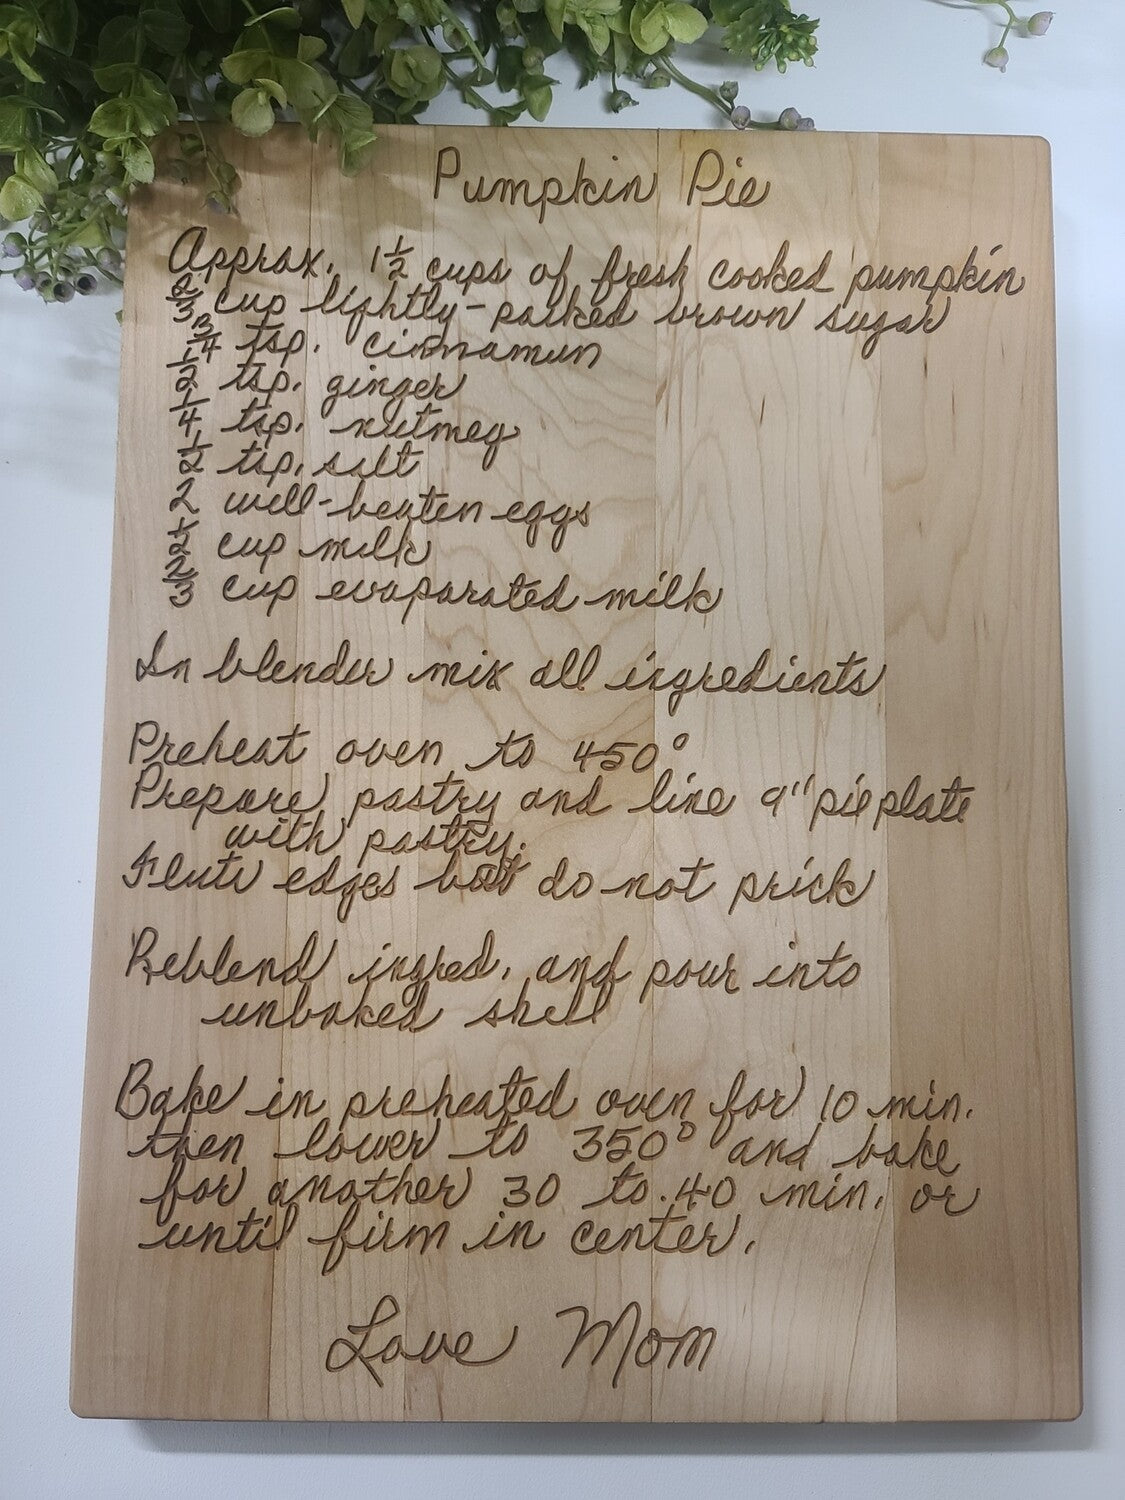 Pumpkin Pie
Approx. 1½ cups of fresh cooked pumpkin
⅔ cup lightly-packed brown sugar
¾ tsp. cinnamun
½ tsp. ginger
¼ tsp. nutmeg
½ tsp. salt
2 well-beaten eggs
½ cup milk
⅔ cup evaporated milk
In blender mix all ingredients
Preheat oven to 450°
Prepare pastry and line 9" pie plate
with pastry.
Flute edges but do not prick
Reblend ingred. and pour into
unbaked shell
Bake in preheated oven for 10 min.
then lower to 350° and bake
for another 30 to 40 min. or
until firm in center.
Love Mom